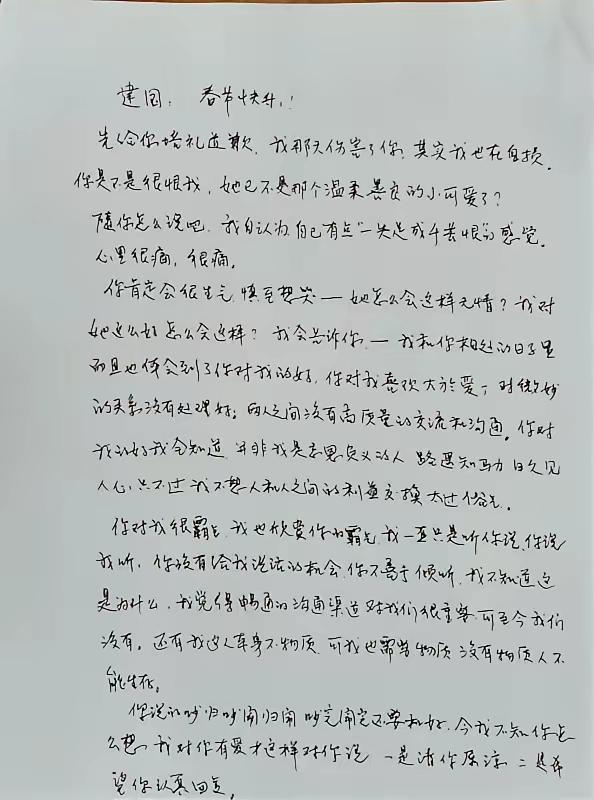 建国：春节快乐！
先给你赔礼道歉，我那天伤害了你，其实我也在自损。
你是不是很恨我，她已不是那个温柔善良的小可爱了？
随你怎么说吧，我自认为自己有点“一失足成千苦恨”的感觉。
心里很痛，很痛。
你肯定会很生气，慎至想哭——她怎么会这样无情？我对
她这么好怎么会这样？我会告诉你，——我和你相处的日子里
而且也体会到了你对我的好，你对我喜欢大於爱，对微妙
的关系没有处理好；两人之间没有高质量的交流和沟通。你对
我的好我全知道，并非我是忘恩负义的人，路遥知马力日久见
人心，只不过我不想人和人之间的利益交换太过俗气。
你对我很霸气，我也欣赏你的霸气，我一直只是听你说，你说
我听，你没有给我说话的机会，你不善于倾听，我不知道这
是为什么，我觉得畅通的沟通渠道对我们很重要，可至今我们
没有。还有我这人本身不物质，可我也需要物质，没有物质人不
能生存。
你说的吵归吵闹归闹吵完闹完还要和好，今我不知你怎
么想，我对你有爱才这样对你说，一是请你原谅，二是希
望你认真回复。